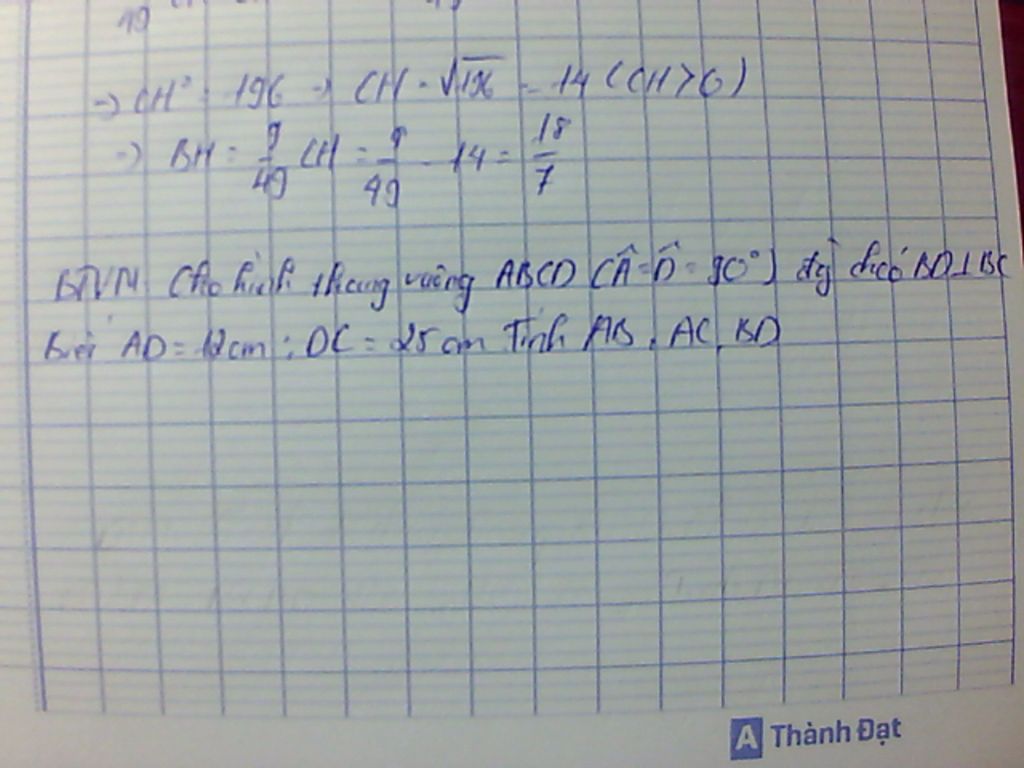 19
→ CH² = 196 → CH = √196 = 14 (CH > 0)
→) BH = 9/49 CH = 9/49 . 14 = 18/7
BTVN Cho hình thang vuông ABCD (Â = D̂ = 90°) đg chéo BD ⊥ BC
Biết AD = 12cm ; DC = 25 cm Tính AB, AC, BD
A Thành Đạt